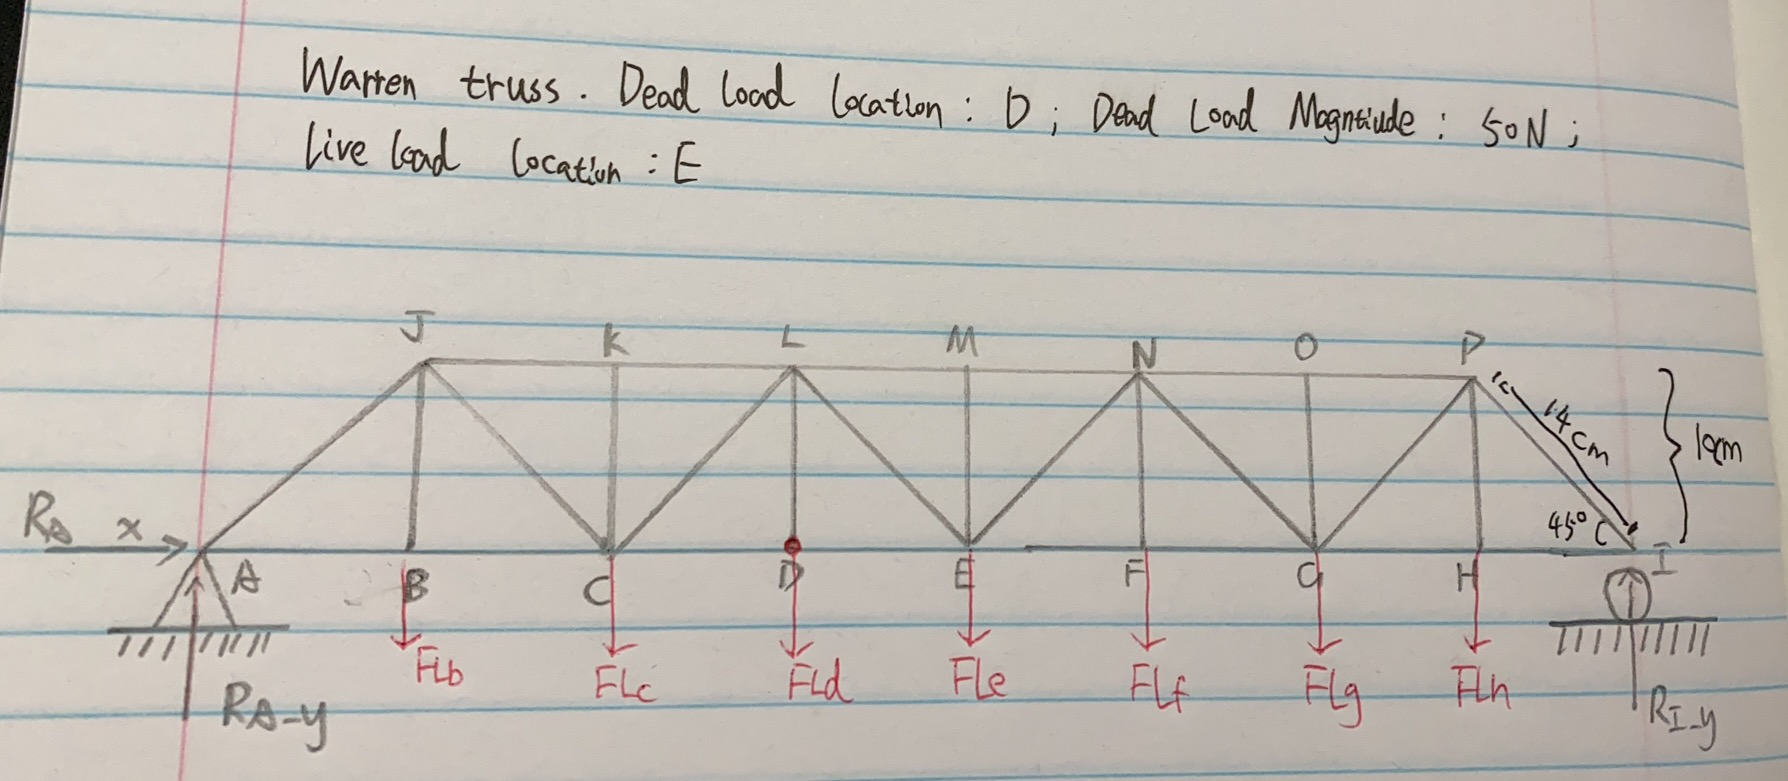 Warren truss. Dead Load Location: D; Dead Load Magntiude: 50N;
Live load Location: E
J K L M N O P
14cm
10cm
45°
RA x
A B C D E F G H I
FLb FLc FLd FLe FLf FLg FLh
RA-y
RI-y